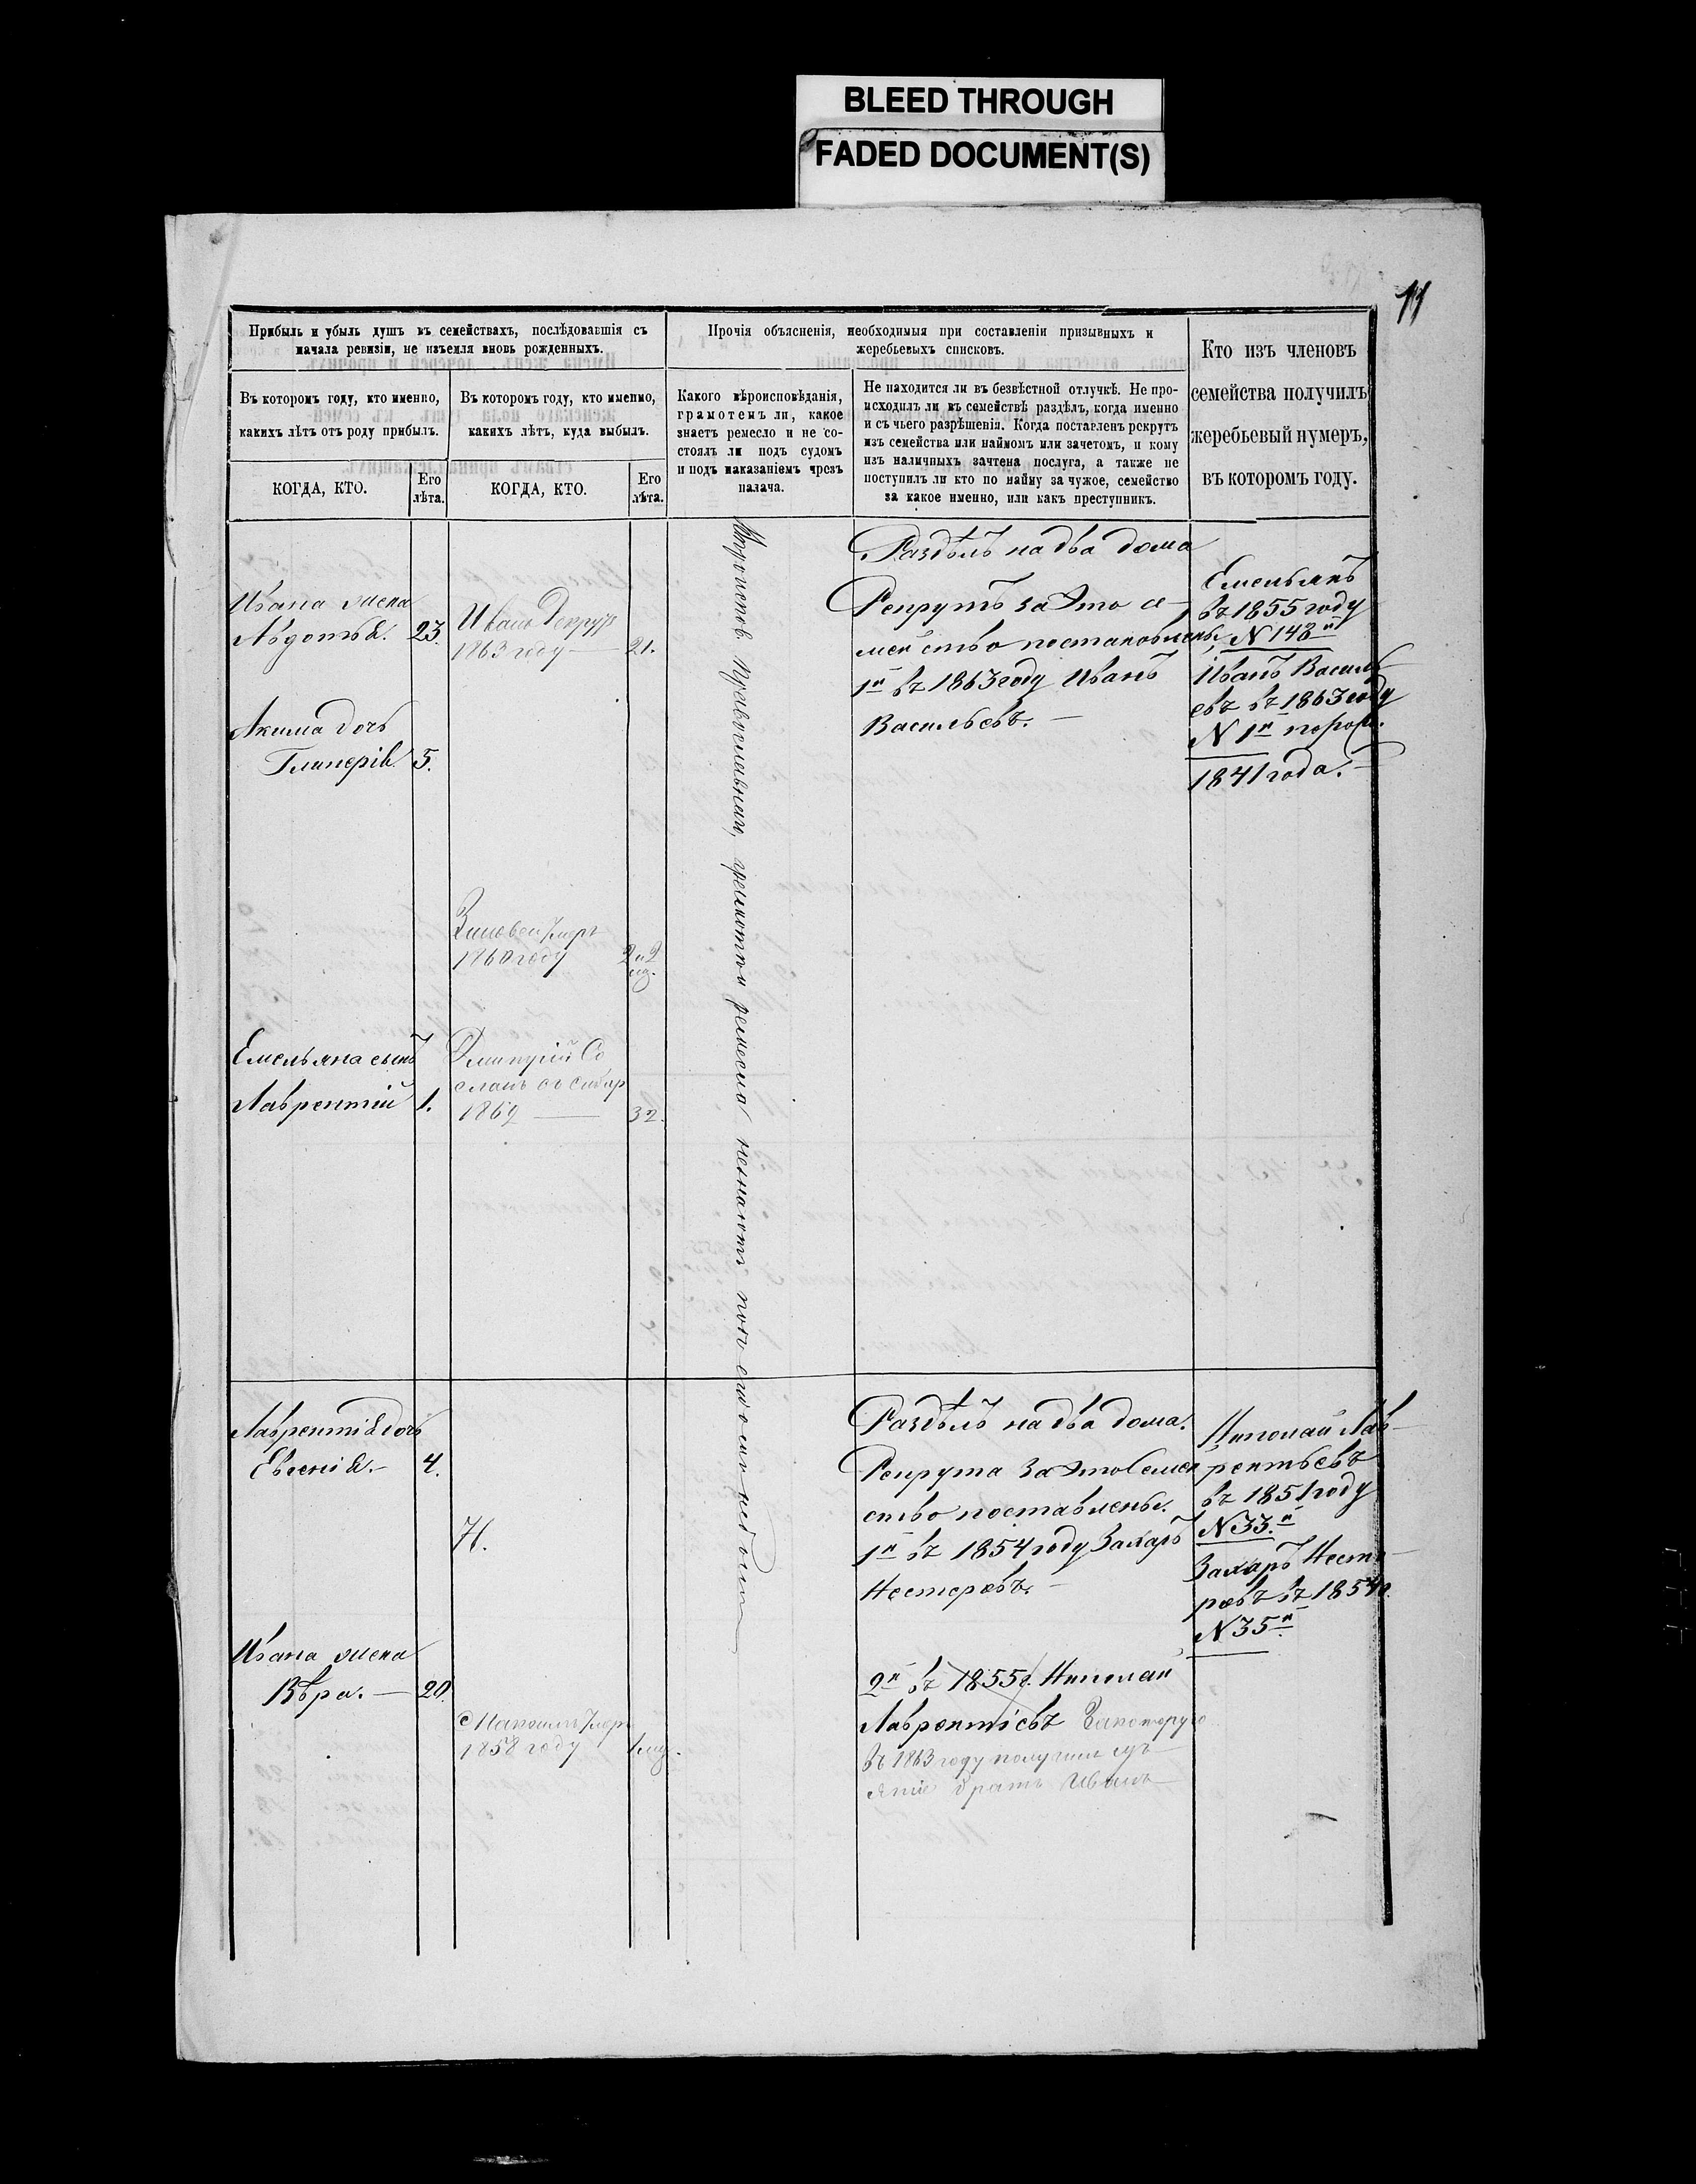 BLEED THROUGH
FADED DOCUMENT(S)
11
Прибыль и убыль душъ въ семействахъ, послѣдовавшія съ
начала ревизіи, не изъемля вновь рожденныхъ.
Прочія объясненія, необходимыя при составленіи призывныхъ и
жеребьевыхъ списковъ.
Кто изъ членовъ
семейства получилъ
жеребьевый нумеръ,
въ которомъ году.
Въ которомъ году, кто именно,
какихъ лѣтъ отъ роду прибылъ.
Въ которомъ году, кто именно,
какихъ лѣтъ, куда выбылъ.
Какого вѣроисповѣданія,
грамотенъ ли, какое
знаетъ ремесло и не со-
стоялъ ли подъ судомъ
и подъ наказаніемъ чрезъ
палача.
Не находится ли въ безвѣстной отлучкѣ. Не про-
исходилъ ли въ семействѣ раздѣлъ, когда именно
и съ чьего разрѣшенія. Когда поставленъ рекрутъ
изъ семейства или наймомъ или зачетомъ, и кому
изъ наличныхъ зачтена послуга, а также не
поступилъ ли кто по найму за чужое, семейство
за какое именно, или какъ преступникъ.
КОГДА, КТО.
Его
лѣта.
КОГДА, КТО.
Его
лѣта.
Ивана жена
Авдотья. 23.
Акима дочь
Гликерія 5.
Емельяна сынъ
Лаврентій 1.
Лаврентія дочь
Евгенія. 4.
Ивана жена
Вѣра. 20.
Иванъ Рекрутъ
1863 году 21.
Зиновей умеръ
1860 году 2 и 2
мѣ.
Дмитрій Со
сланъ въ Сибир
1869 32.
Н.
Максимъ умеръ
1858 году 1 мѣ.
православныя, грамоты и ремесла незнаютъ подъ судомъ небыли
Раздѣлъ на два дома
Рекрутъ за это се-
мейство поставленъ,
1й въ 1863 году Иванъ
Васильевъ.
Раздѣлъ на два дома.
Рекрута за это Семей
ство поставлены.
1й въ 1854 году Захаръ
Нестеровъ.
2й въ 1855 г. Николай
Лаврентіевъ за которую
въ 1863 году получилъ
братъ Иванъ
Емельянъ
въ 1855 году
N 148й
Иванъ Василь
евъ въ 1863 году
N 1й
1841 года.
Николай Лав-
рентьевъ
въ 1851 году
N 33.й
Захаръ Несте-
ровъ въ 1854 г.
N 35й.